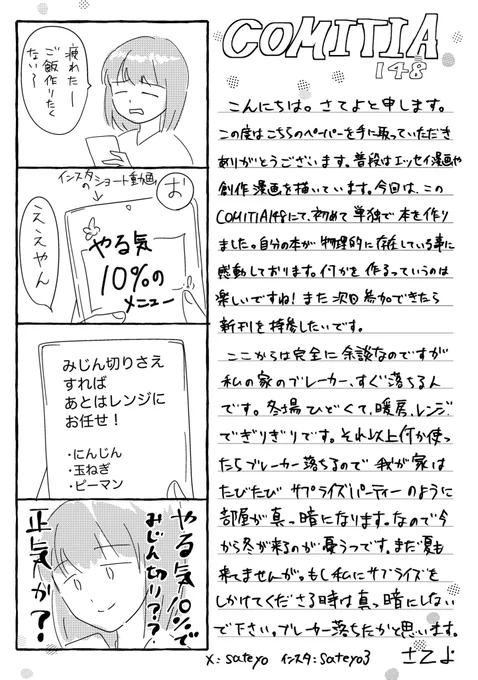 疲れたー
ご飯作りたく
ない〜
インスタの
ショート動画
お
やる気
10%の
メニュー
ええやん
みじん切りさえ
すれば
あとはレンジに
お任せ！
・にんじん
・玉ねぎ
・ピーマン
やる気10%で
みじん切り??
正気か?
COMITIA
148
こんにちは。さてよと申します。
この度はこちらのペーパーを手に取っていただき
ありがとうございます。普段はエッセイ漫画や
創作漫画を描いています。今回は、この
COMITIA148にて、初めて単独で本を作り
ました。自分の本が物理的に存在している事に
感動しております。何かを作るっていうのは
楽しいですね！また次回参加できたら
新刊を持参したいです。
ここからは完全に余談なのですが
私の家のブレーカー、すぐ落ちるん
です。冬場ひどくて、暖房、レンジ
でぎりぎりです。それ以上何か使っ
たらブレーカー落ちるので我が家は
たびたびサプライズパーティーのように
部屋が真っ暗になります。なので今
から冬が来るのが憂うつです。まだ夏も
来てませんが。もし私にサプライズを
しかけてくださる時は真っ暗にしない
で下さい。ブレーカー落ちたかと思います。
X:sateyo インスタ:sateyo3 さてよ